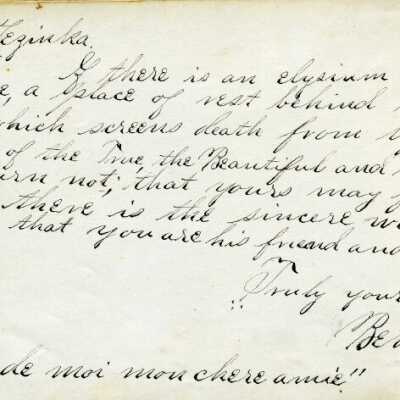 Tezinka.
If there is an elysium
e, a place of rest behind
which screens death from
of the True, the Beautiful and
urn not; that yours may
there is the sincere w
that you are his friend and
Truly your
Be
de moi mon chere amie"